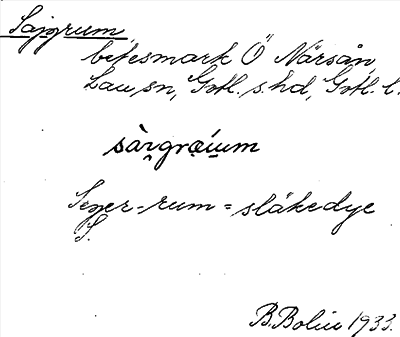 Sajgrum,
betesmark Ö Närsån,
Lau sn, Gotl. s. hd, Gotl. l.
Seger-rum = slåkedye
S.
B. Bolin 1933.